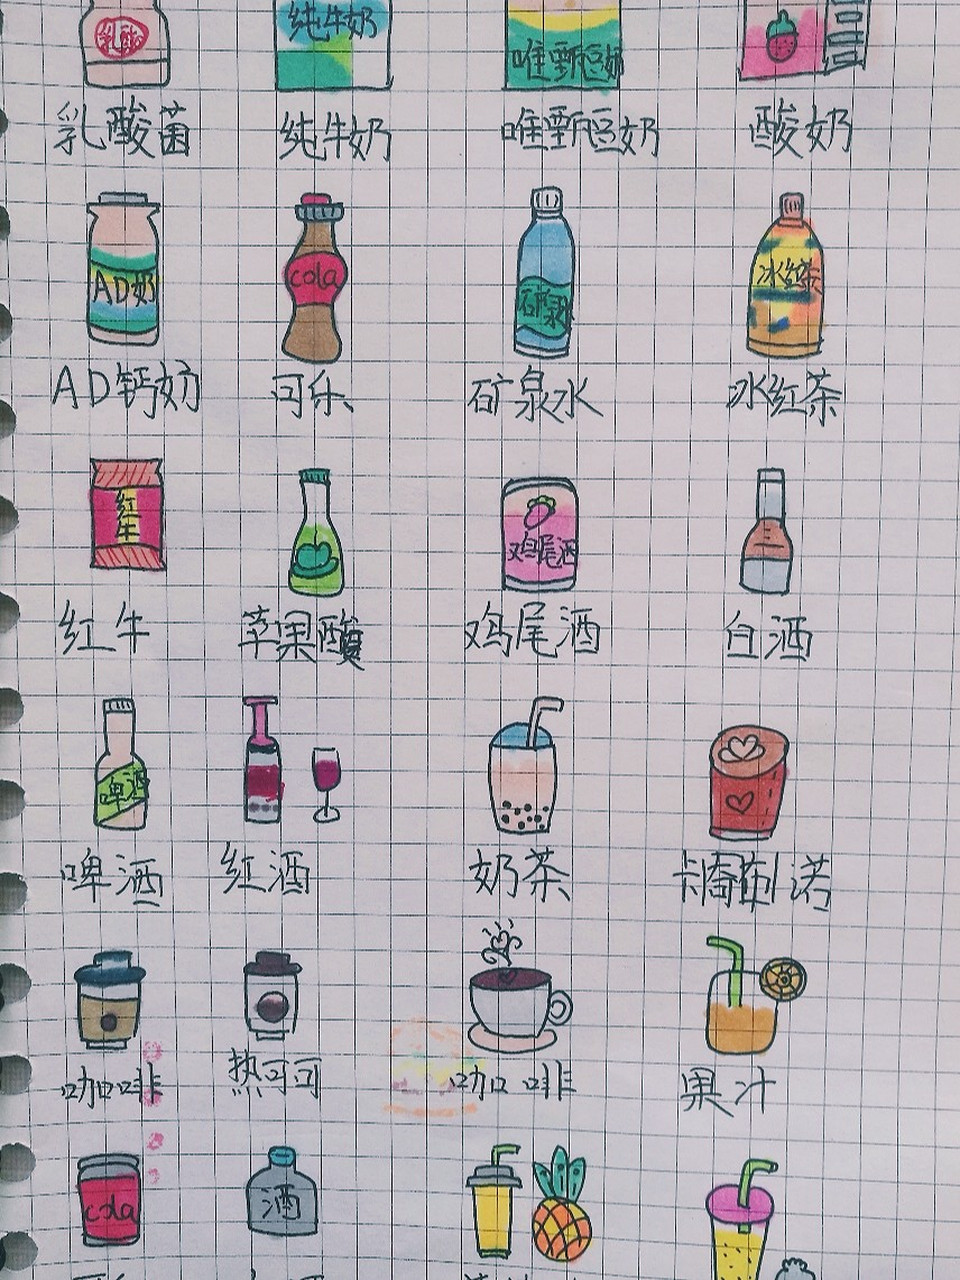 乳酸 纯牛奶 唯甄豆奶
乳酸菌 纯牛奶 唯甄豆奶 酸奶
AD奶 cola 矿泉 冰红茶
AD钙奶 可乐 矿泉水 冰红茶
红牛 鸡尾酒
红牛 苹果酸 鸡尾酒 白酒
啤酒
啤酒 红酒 奶茶 卡布诺
咖啡 热可可 咖啡 果汁
cola 酒